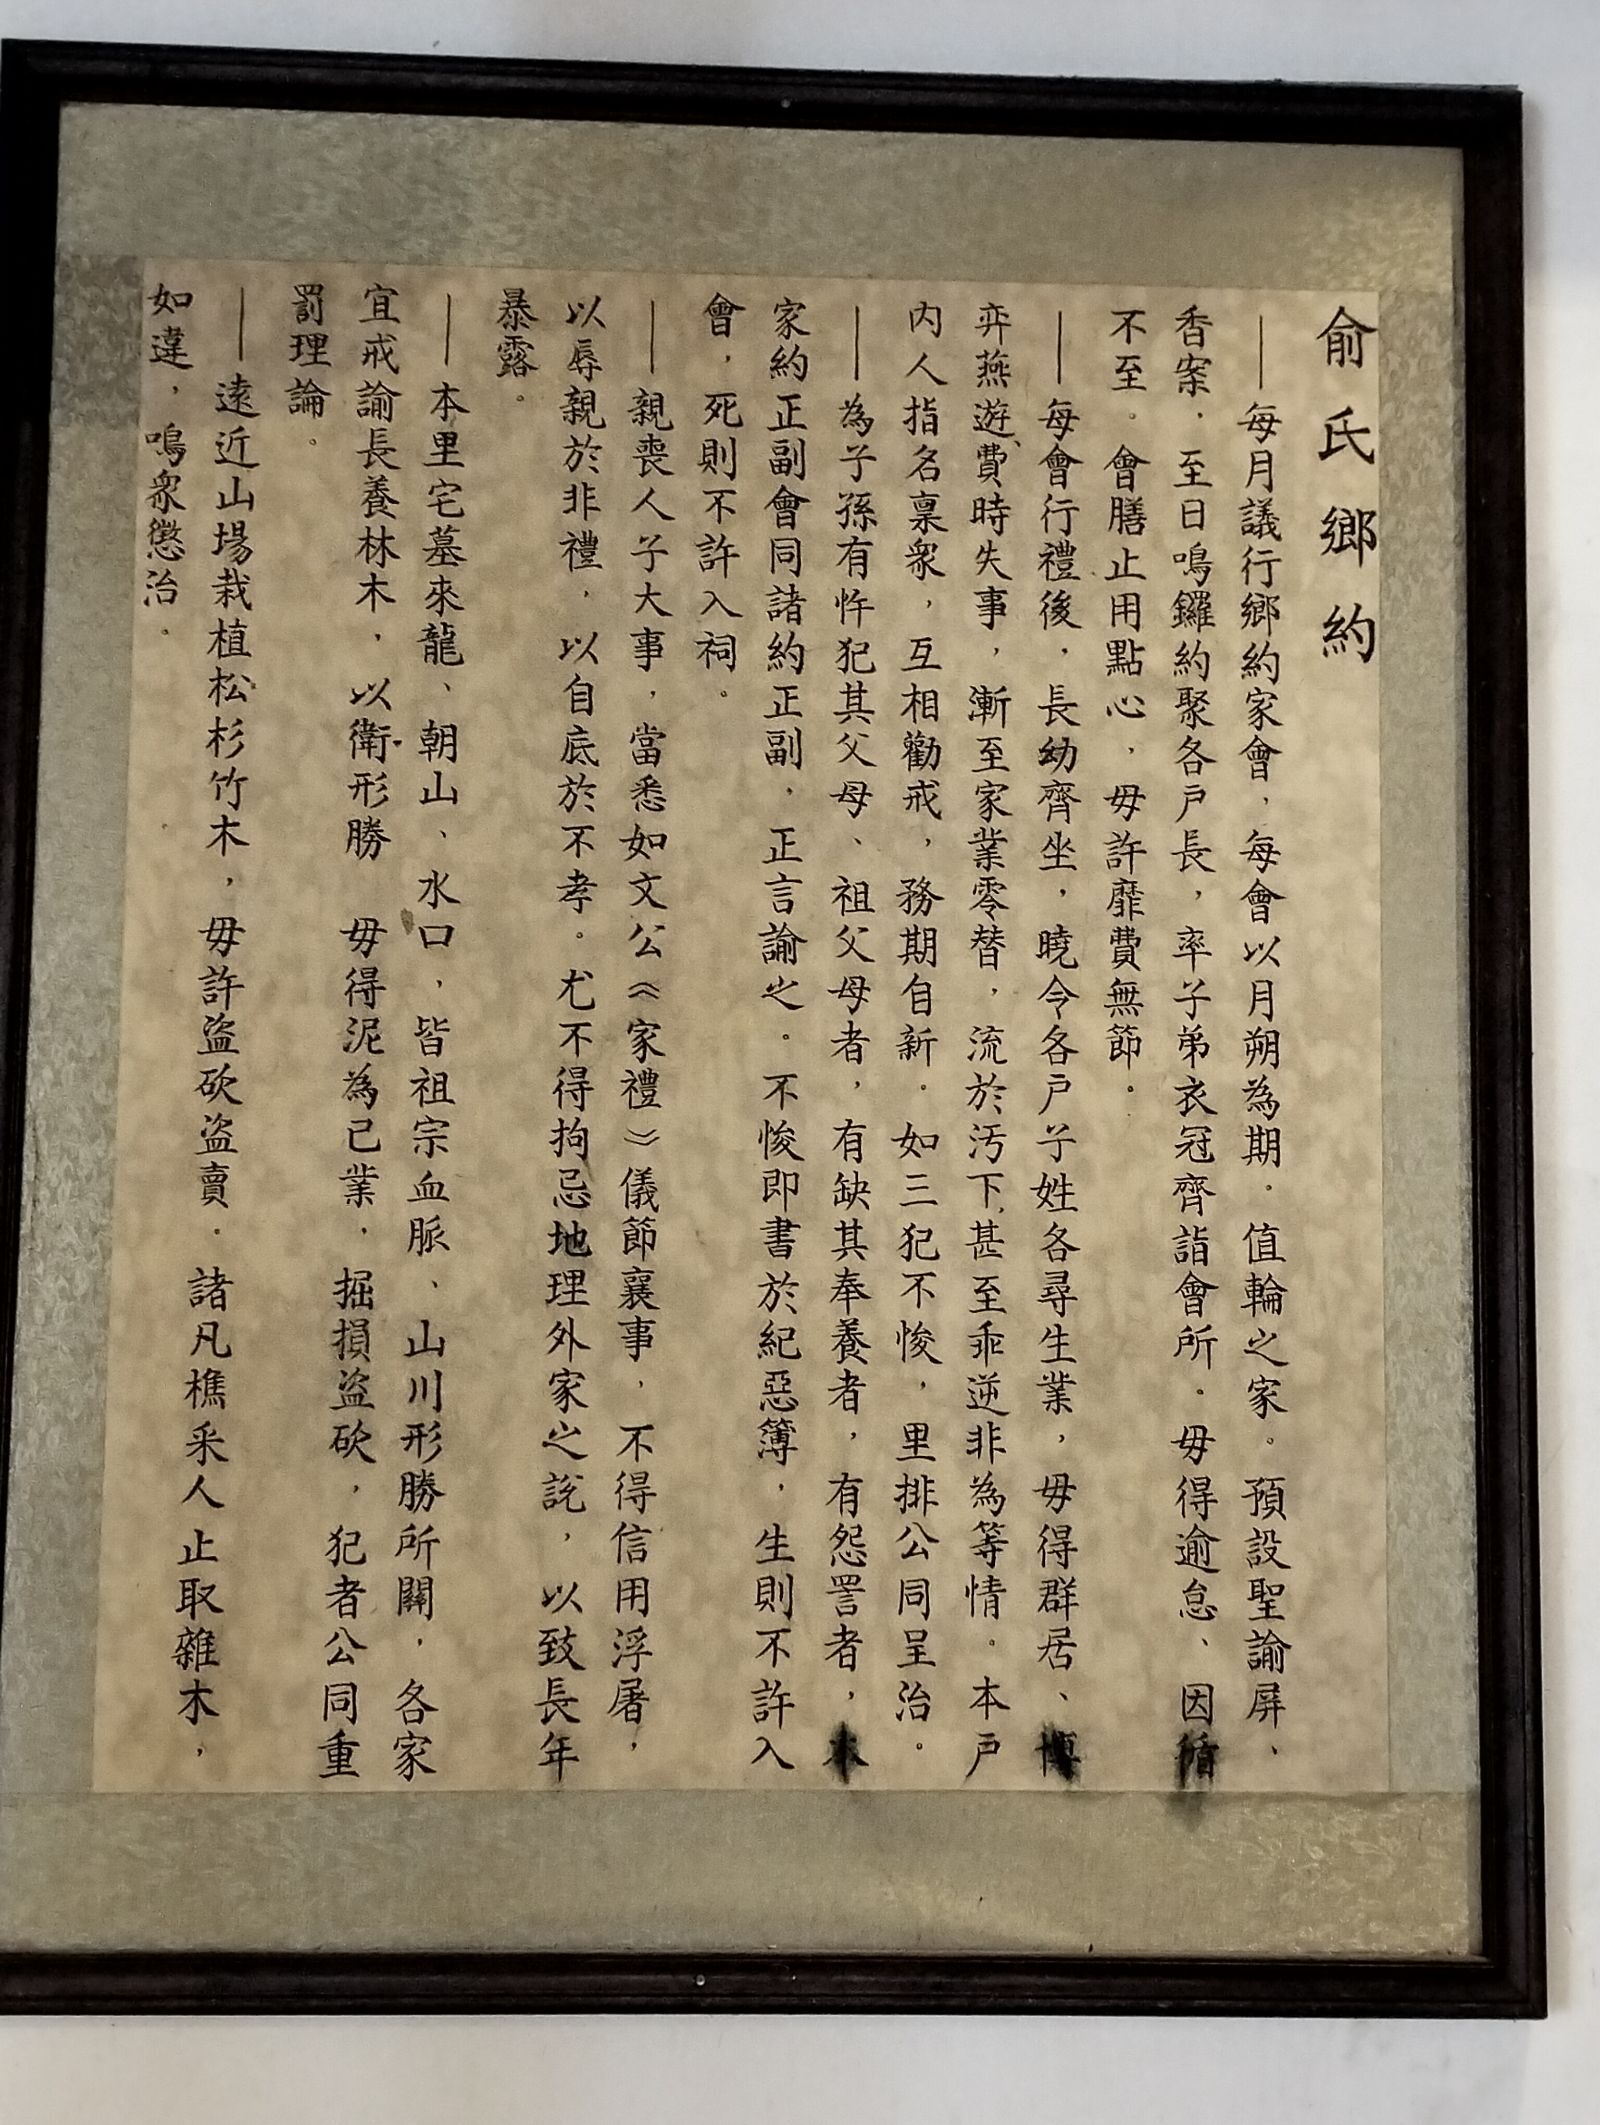 俞氏鄉約
——每月議行鄉約家會，每會以月朔為期．值輪之家。預設聖諭屏、
香案．至日鳴鑼約聚各戶長，率子弟衣冠齊詣會所．毋得逾怠、因循
不至。會膳止用點心，毋許靡費無節。
——每會行禮後．長幼齊坐，曉令各戶子姓各尋生業，毋得群居、博
弈燕遊、費時失事，漸至家業零替，流於汚下，甚至乖逆非為等情。本戶
內人指名稟衆，互相勸戒，務期自新．如三犯不悛，里排公同呈治。
——為子孫有忤犯其父母、祖父母者，有缺其奉養者，有怨詈者，本
家約正副會同諸約正副．正言諭之。不悛即書於紀惡簿．生則不許入
會．死則不許入祠。
——親喪人子大事，當悉如文公《家禮》儀節襄事．不得信用浮屠，
以辱親於非禮．以自底於不孝。尤不得拘忌地理外家之說，以致長年
暴露。
——本里宅墓來龍、朝山、水口，皆祖宗血脈、山川形勝所關．各家
宜戒諭長養林木，以衛形勝　毋得泥為己業．掘損盜砍，犯者公同重
罰理論。
——遠近山場栽植松杉竹木，毋許盜砍盜賣．諸凡樵采人止取雜木，
如違，鳴衆懲治．